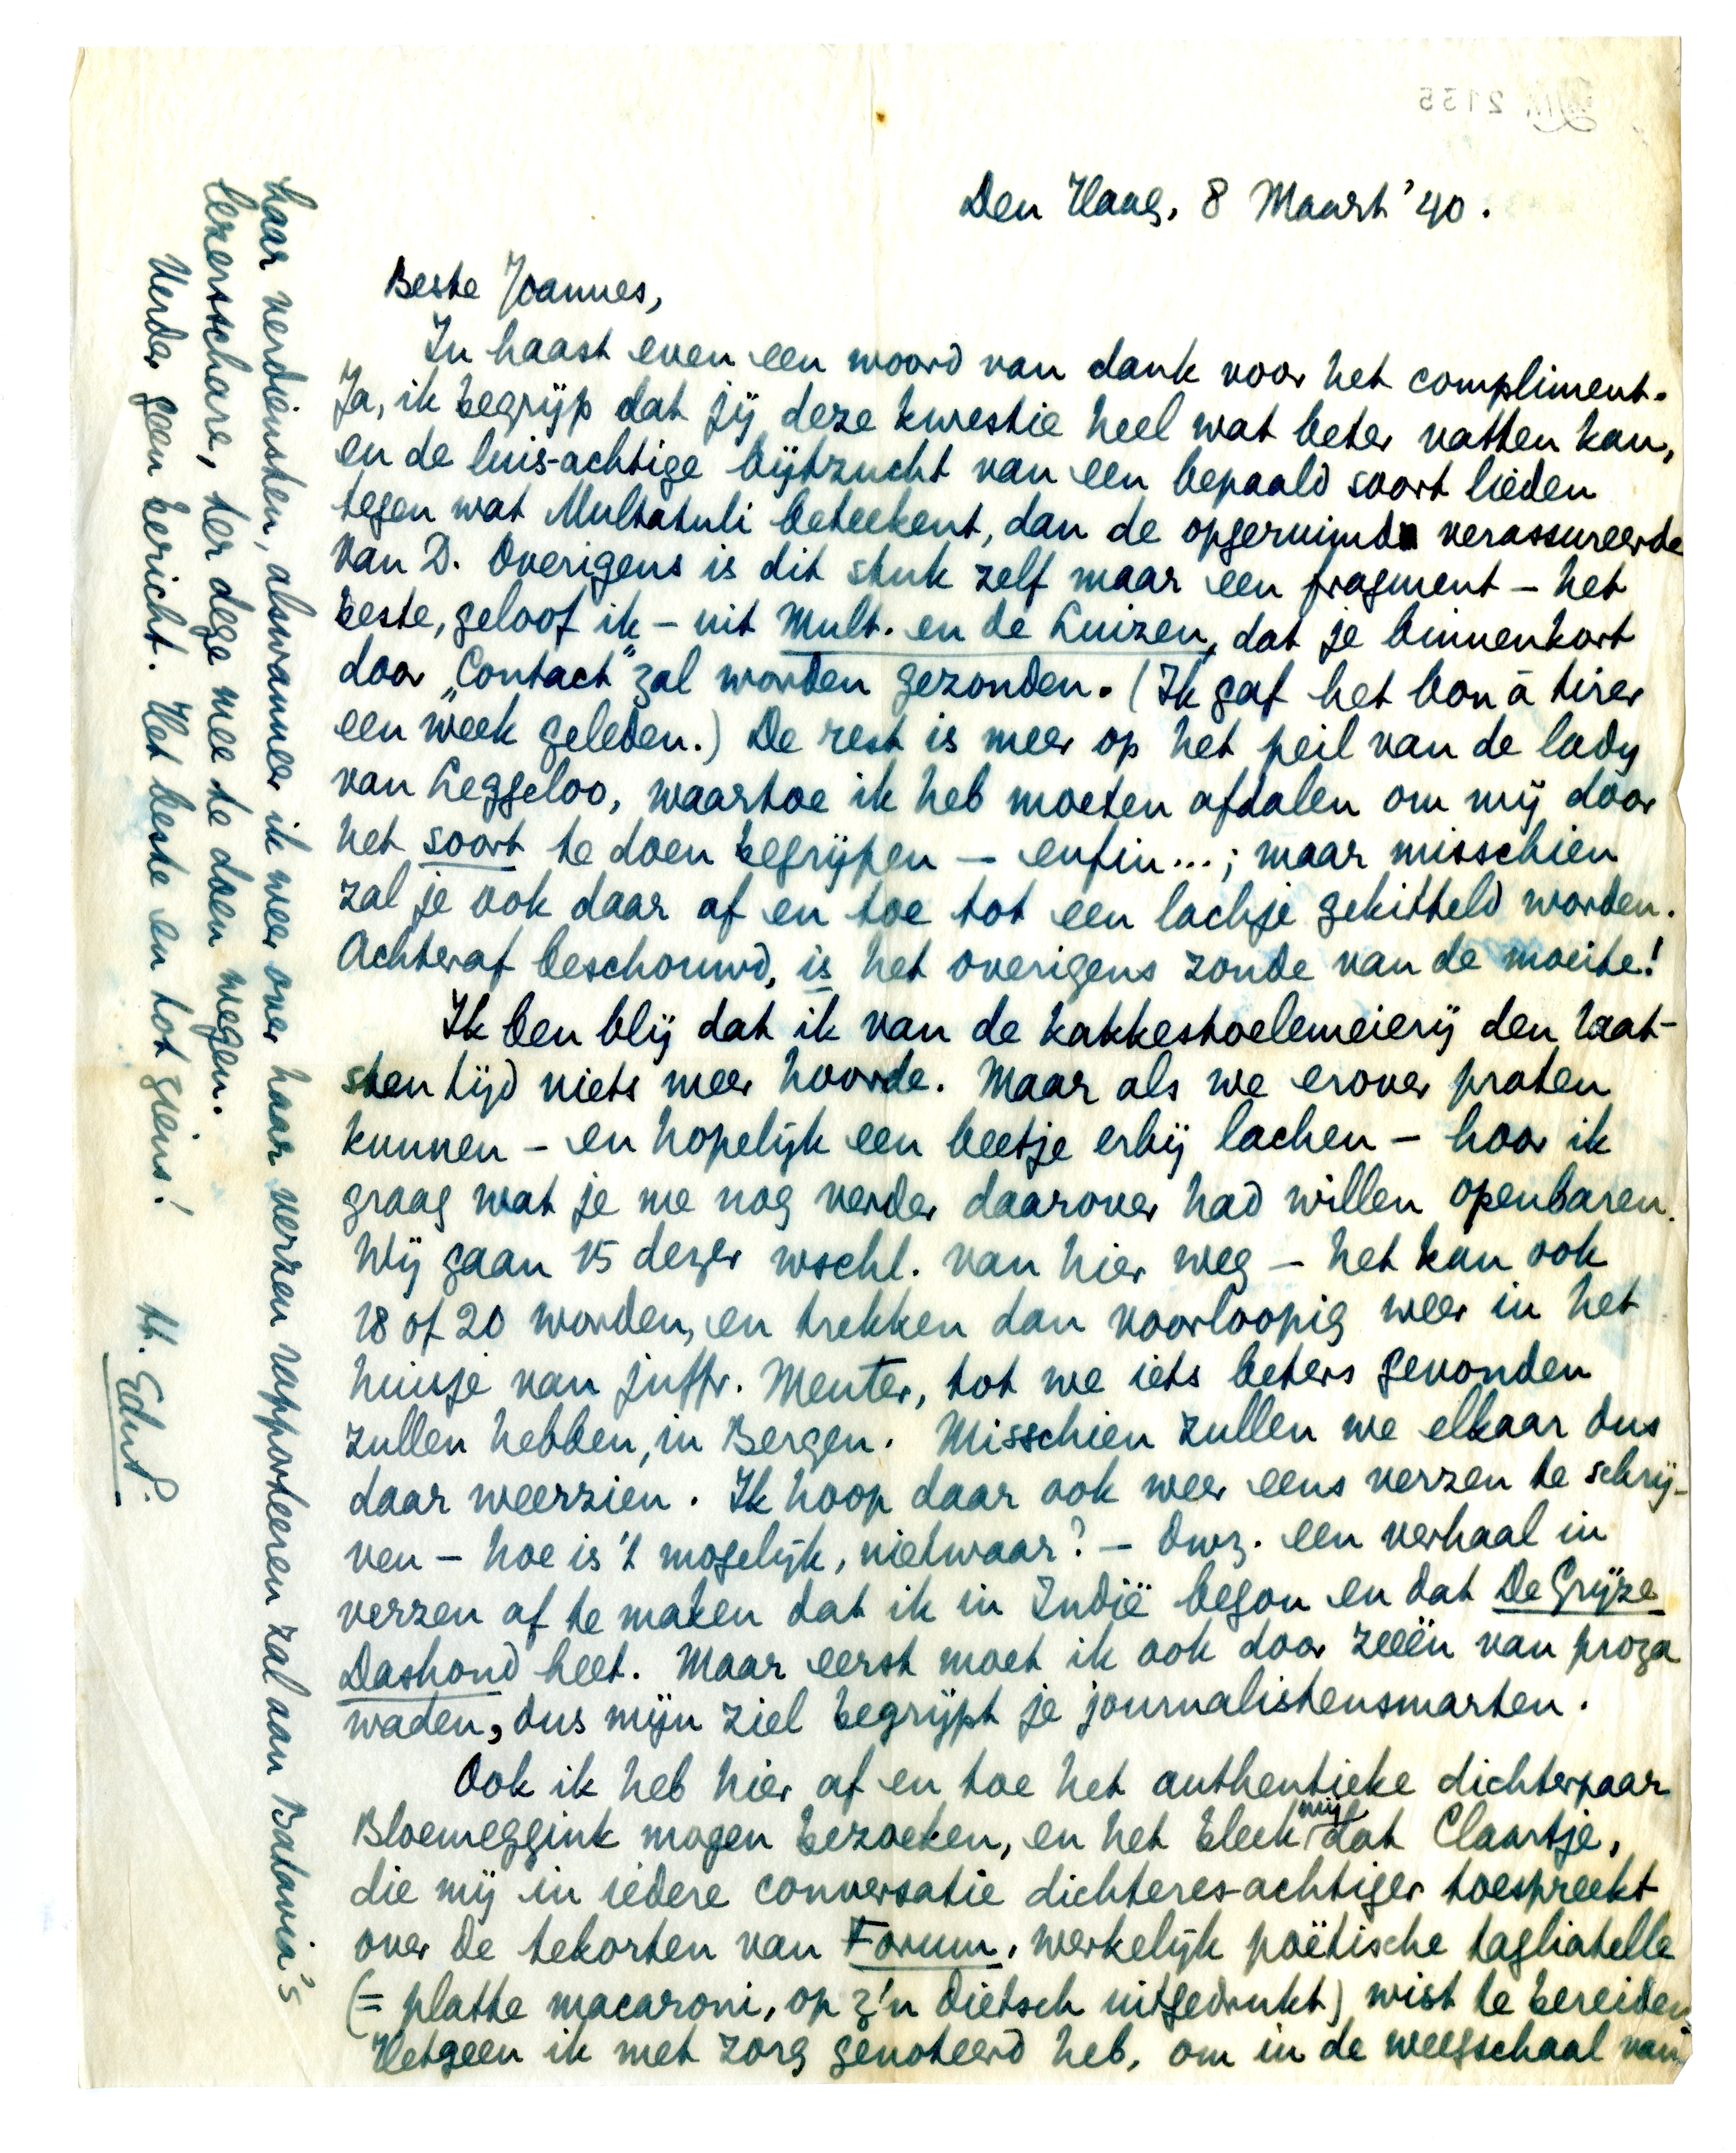 Den Haag, 8 Maart '40.
Beste Joannes,
In haast even een woord van dank voor het compliment.
Ja, ik begrijp dat jij deze kwestie heel wat beter vatten kan,
en de luis-achtige bijtzucht van een bepaald soort lieden
tegen wat Multatuli beteekent, dan de opgeruimde verassureerde
van D. Overigens is dit stuk zelf maar een fragment – het
beste, geloof ik – uit Mult. en de Luizen, dat je binnenkort
door „Contact" zal worden gezonden. (Ik gaf het bon à tirer
een week geleden.) De rest is meer op het peil van de lady
van Leggeloo, waartoe ik heb moeten afdalen om mij door
het soort te doen begrijpen – enfin...; maar misschien
zal je ook daar af en toe tot een lachje gekitteld worden.
Achteraf beschouwd, is het overigens zonde van de moeite!
Ik ben blij dat ik van de kakkestoelemeierij den laat-
sten tijd niets meer hoorde. Maar als we erover praten
kunnen – en hopelijk een beetje erbij lachen – hoor ik
graag wat je me nog verder daarover had willen openbaren.
Wij gaan 15 dezer wschl. van hier weg – het kan ook
18 of 20 worden, en trekken dan voorloopig weer in het
huisje van juffr. Menter, tot we iets beters gevonden
zullen hebben, in Bergen. Misschien zullen we elkaar dus
daar weerzien. Ik hoop daar ook weer eens verzen te schrij-
ven – hoe is 't mogelijk, nietwaar? – dwz. een verhaal in
verzen af te maken dat ik in Indië begon en dat De Grijze
Dashond heet. Maar eerst moet ik ook door zeeën van proza
waden, dus mijn ziel begrijpt je journalistensmarten.
Ook ik heb hier af en toe het authentieke dichterpaar
Bloemeggink mogen bezoeken, en het bleek mij dat Claartje,
die mij in iedere conversatie dichteres-achtiger toespreekt
over de tekorten van Forum, werkelijk poëtische tagliatelle
(= platte macaroni, op z'n Dietsch uitgedrukt) wist te bereiden.
Hetgeen ik met zorg genoteerd heb, om in de weegschaal van
haar verdiensten, alswanneer ik weer over haar verzen rapporteeren zal aan Batavia's
lezersschare, ter dege mee te doen wegen.
Verder geen bericht. Het beste en tot ziens!
tt. EduP.
2135